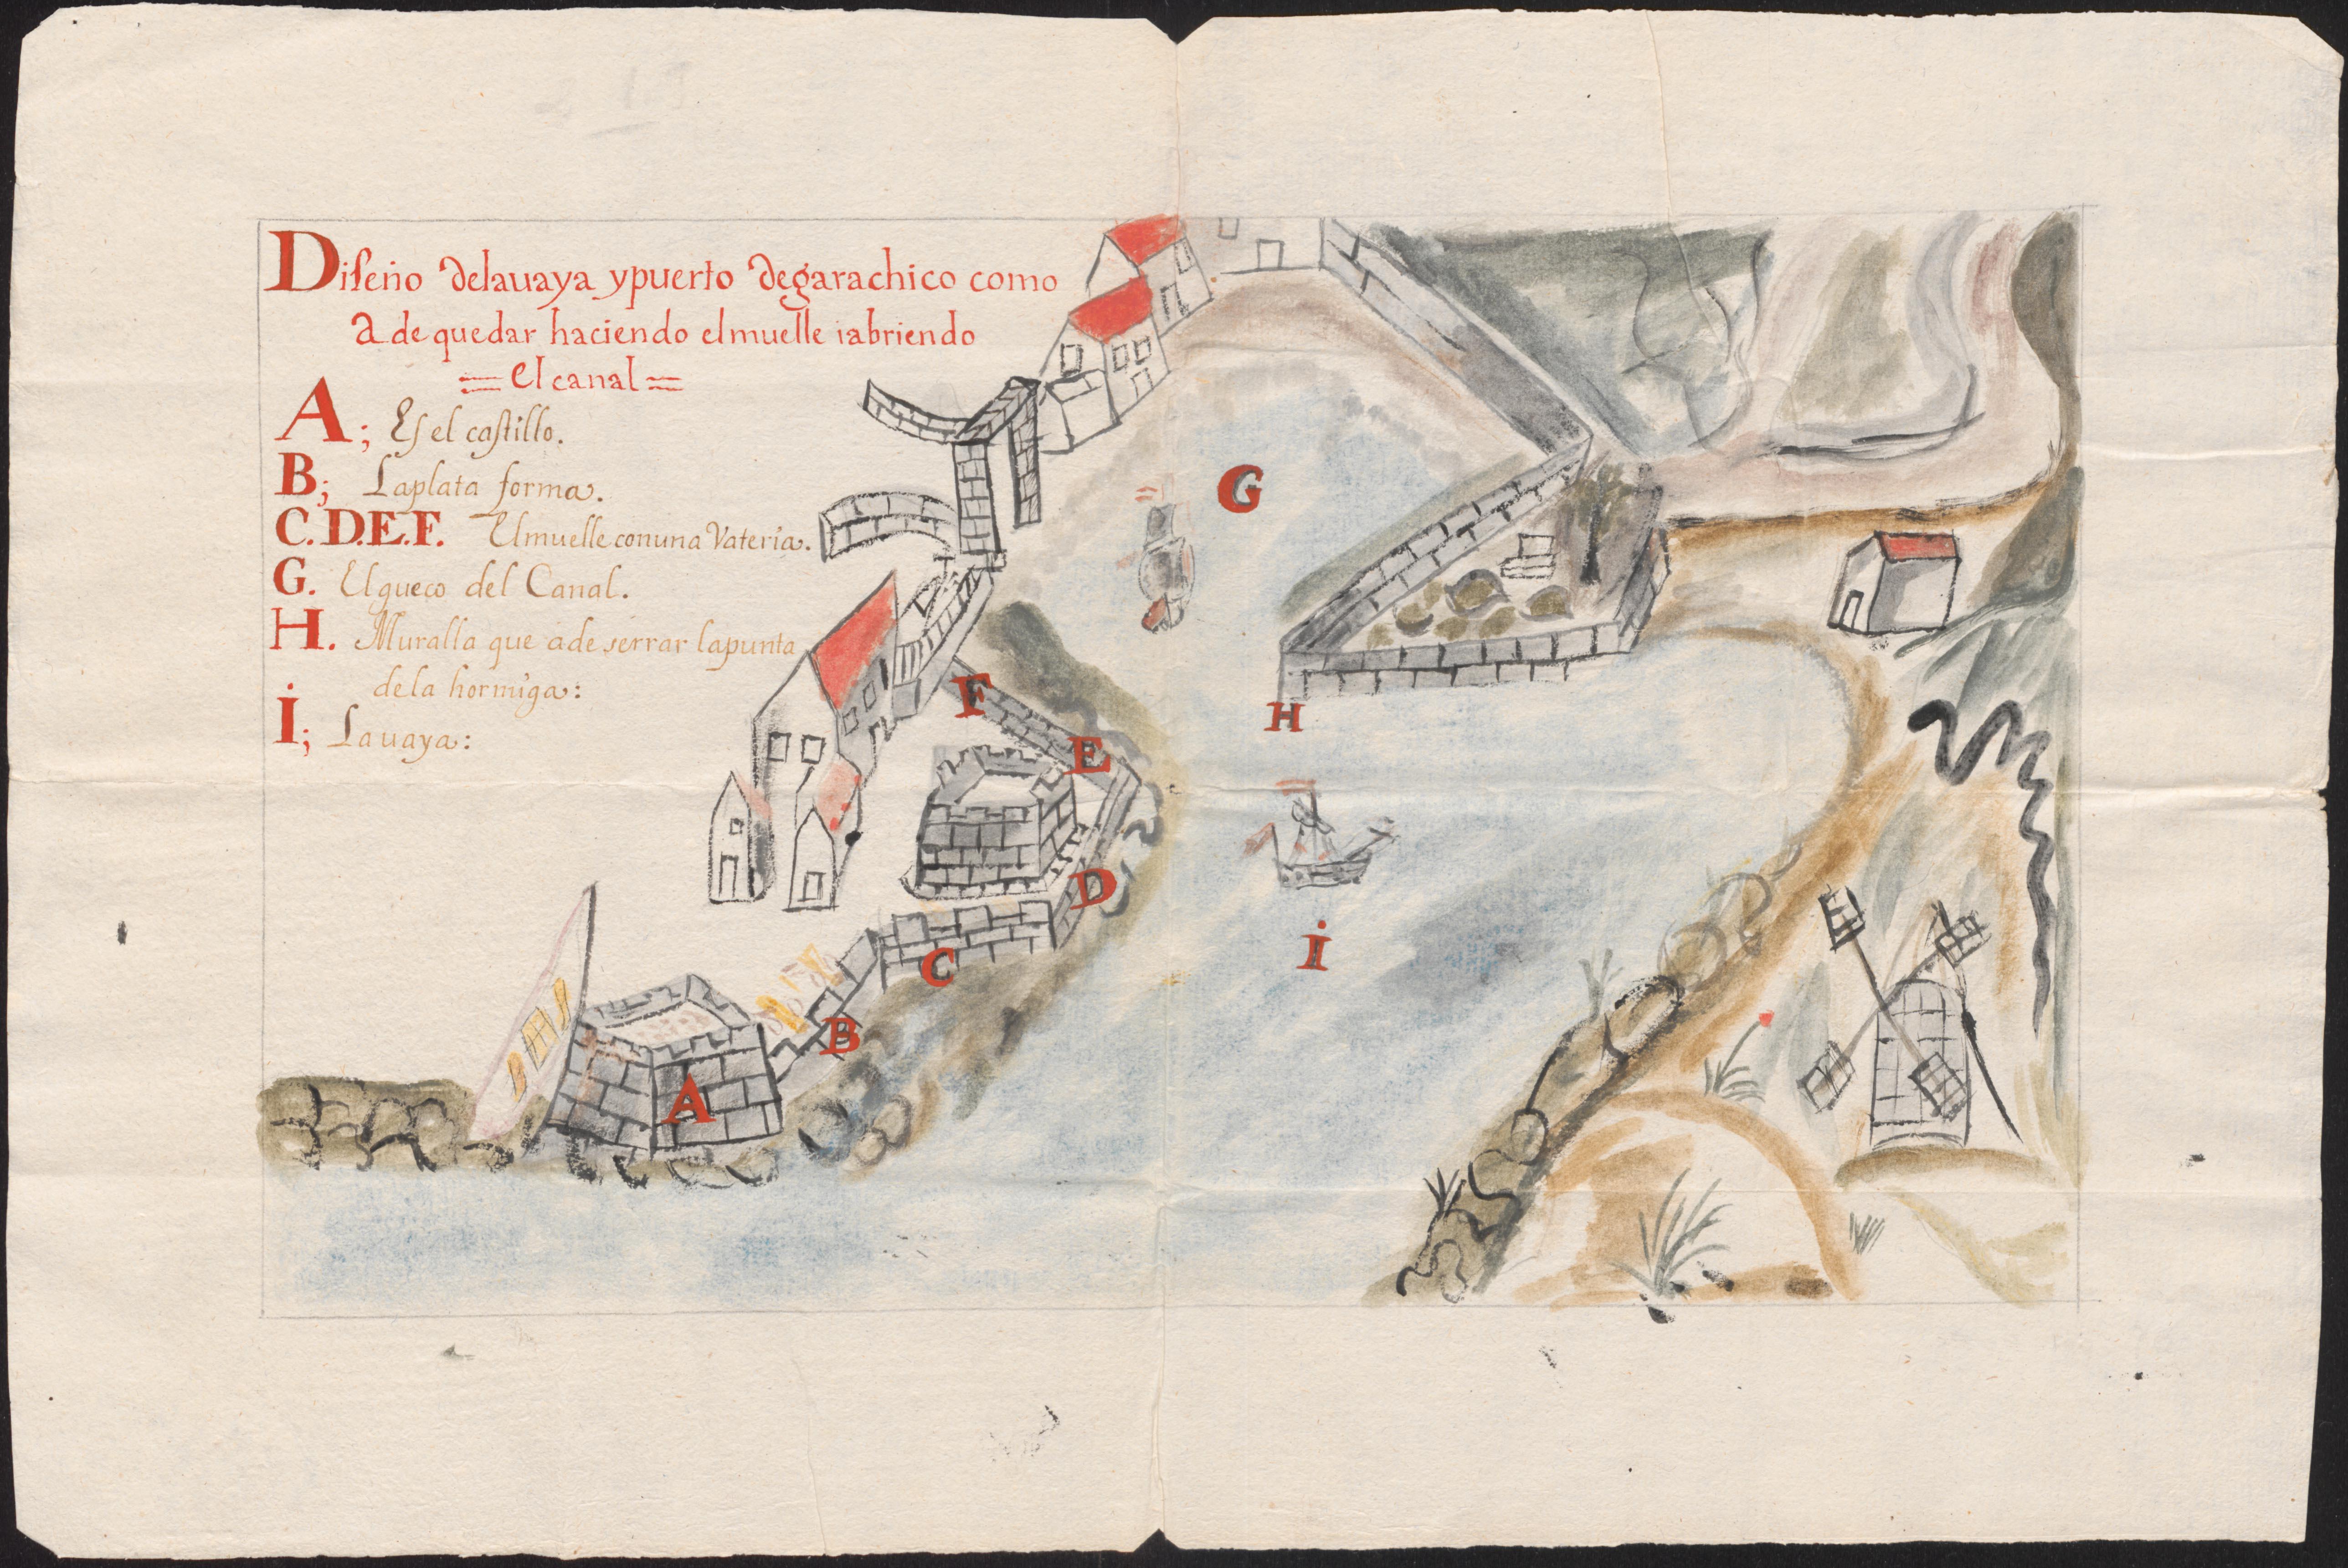 Diseño delauaya ypuerto degarachico como
a de quedar haciendo elmuelle iabriendo
= el canal =
A; Es el castillo.
B; Laplata forma.
C.D.E.F. Elmuelle conuna Vateria.
G. Elgueco del Canal.
H. Muralla que ade serrar lapunta
dela hormiga:
i; Lauaya:
G
F
H
E
D
C
i
B
A